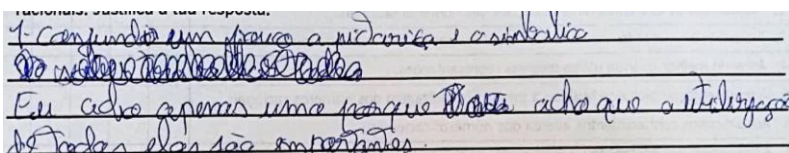 racionais. Justifica a tua resposta.
1- Confundo um pouco a pictórica e a simbólica
Eu acho apenas uma porque acho que a utilização
de todas elas são importantes.